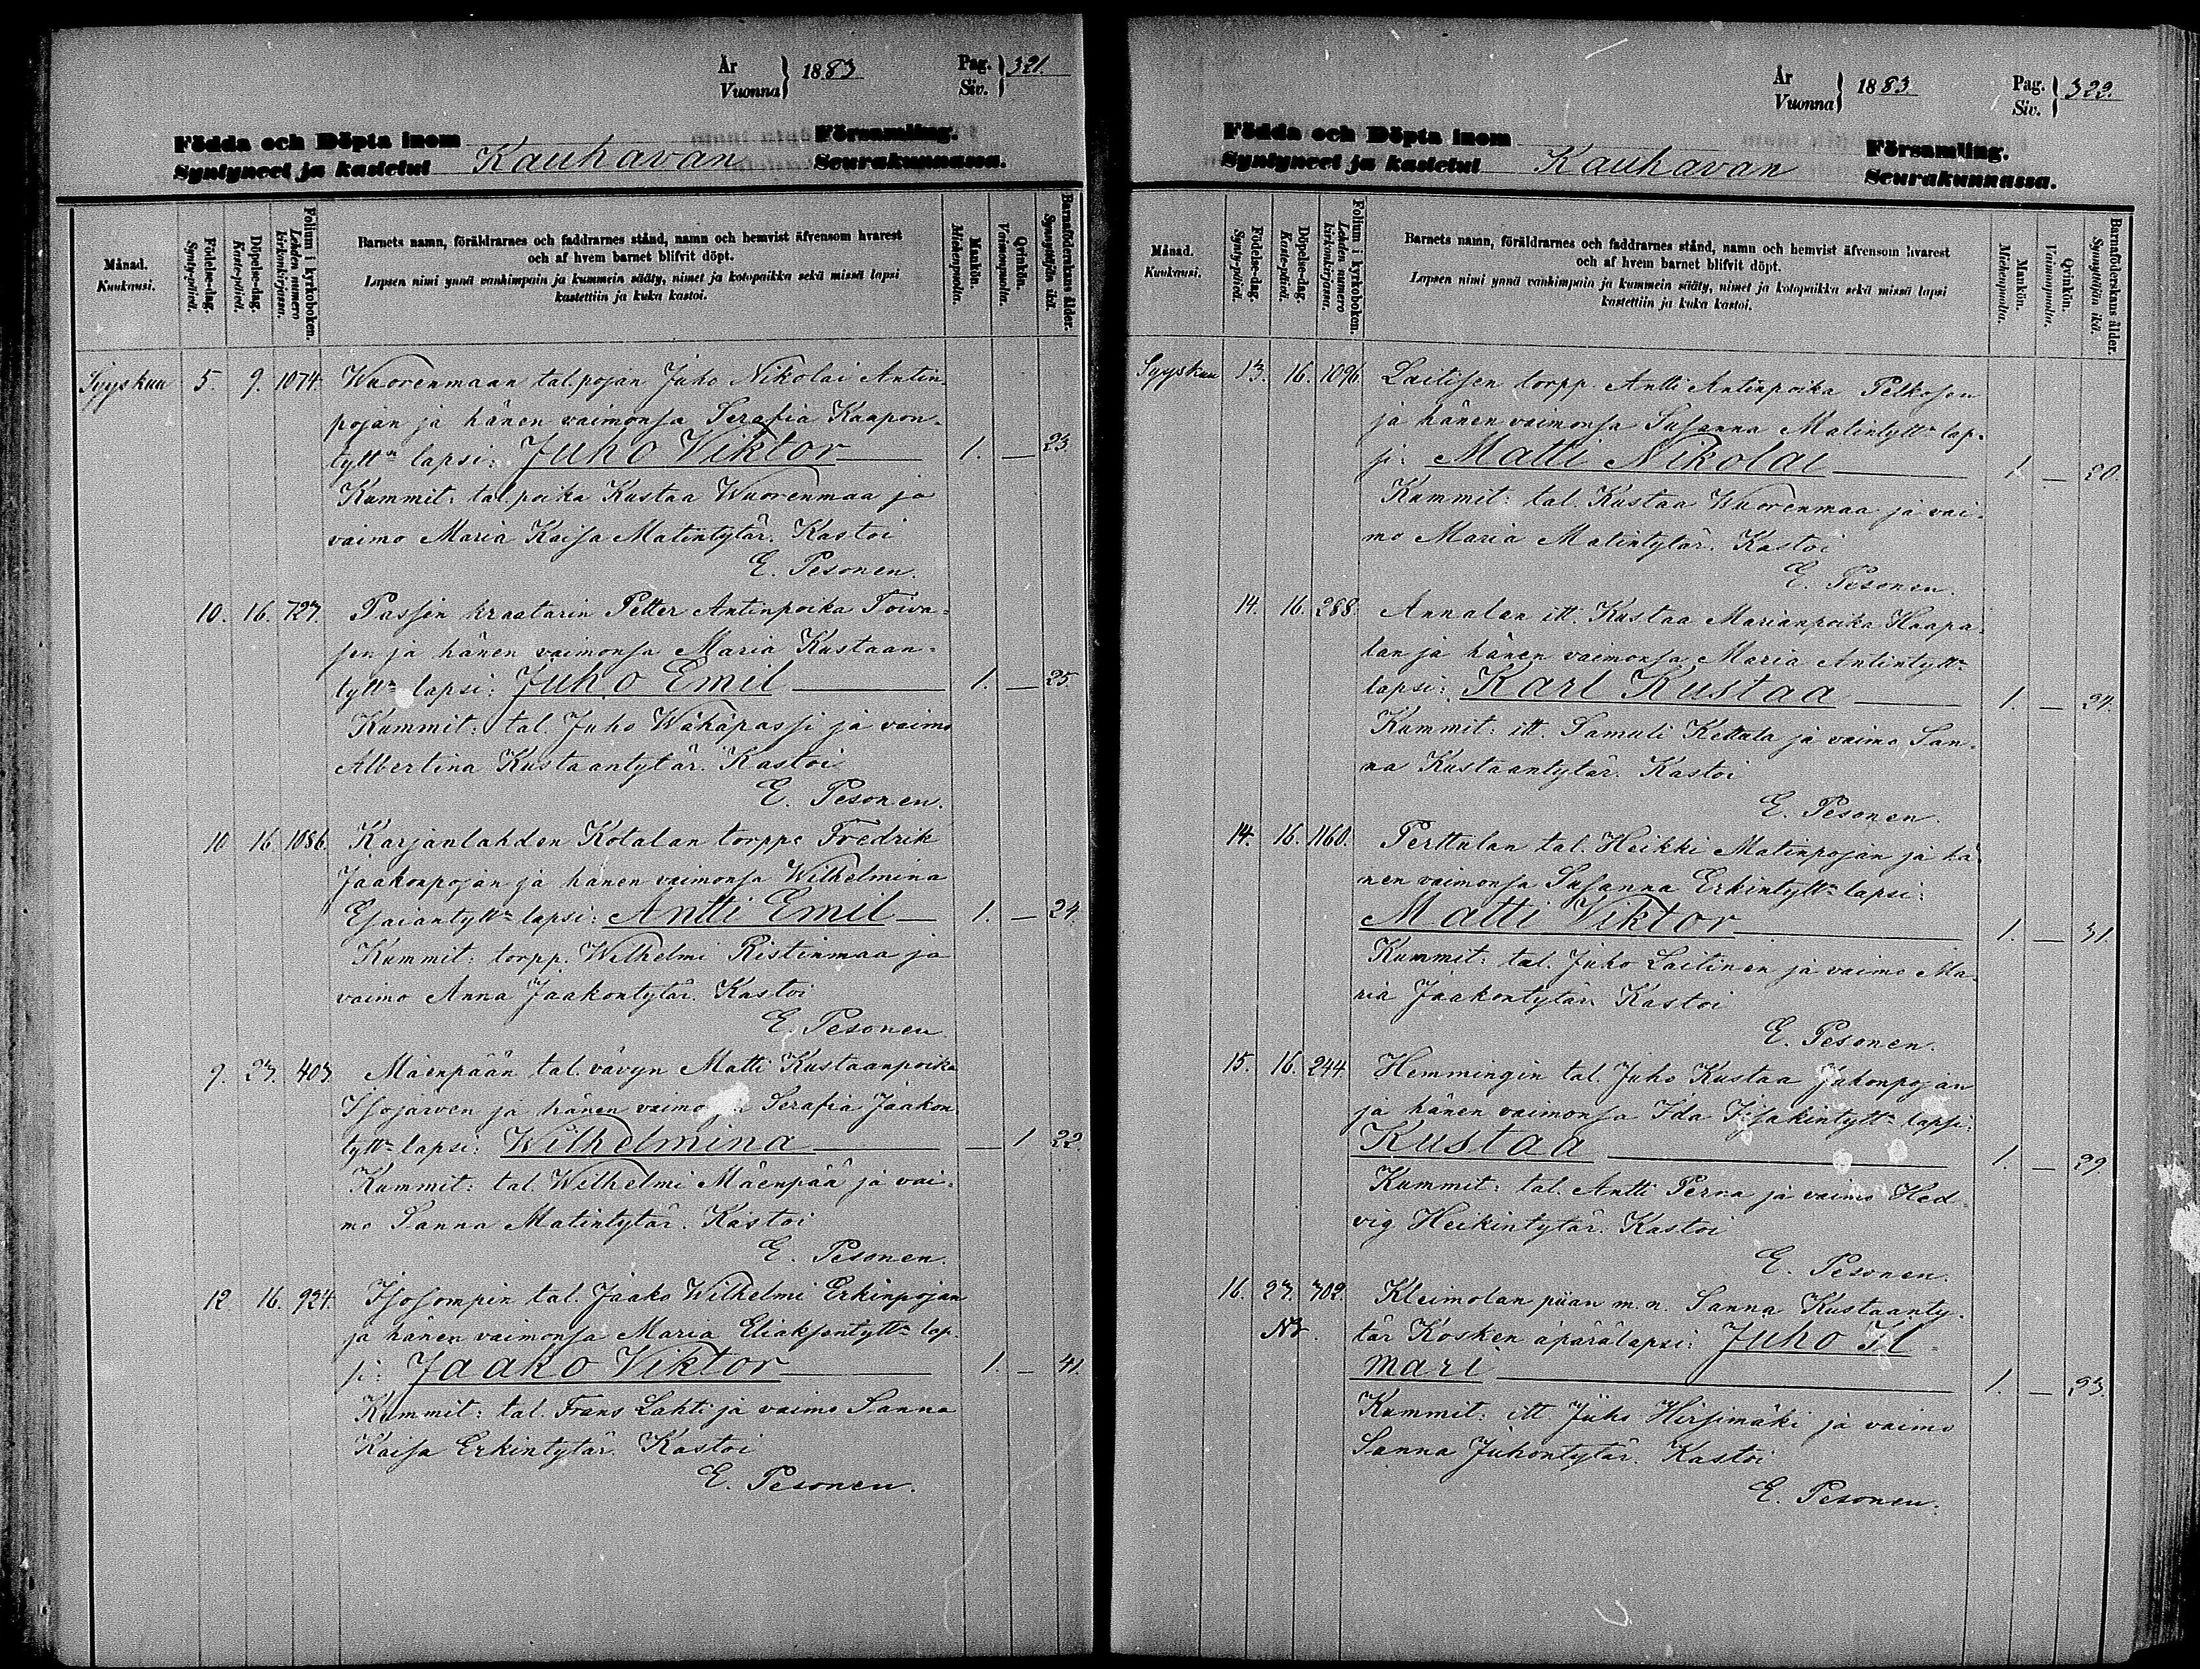 År
Vuonna } 1883
Pag.
Siv. } 321.
Födda och Döpta inom
Syntyneet ja kastetut Kauhavan
Församling.
Seurakunnassa.
Månad.
Kuukausi.
Födelse-dag.
Synty-päivä.
Döpelse-dag.
Kaste-päivä.
Folium i kyrkoboken.
Lehden numero kirkonkirjassa.
Barnets namn, föräldrarnes och faddrarnes stånd, namn och hemvist äfvensom hvarest
och af hvem barnet blifvit döpt.
Lapsen nimi ynnä vanhimpain ja kummein sääty, nimet ja kotopaikka sekä missä lapsi
kastettiin ja kuka kastoi.
Mankön.
Miehenpuolia.
Qvinkön.
Vaimonpuolia.
Barnaföderskans ålder.
Synnyttäjän ikä.
Syyskuu 5. 9. 1074. Wuorenmaan tal. pojan Juho Nikolai Antin-
pojan ja hänen vaimonsa Serafia Kaapon-
tyttn lapsi: Juho Viktor 1. — 23.
Kummit: tal. poika Kustaa Wuorenmaa ja
vaimo Maria Kaisa Matintytär. Kastoi
E. Pesonen.
10. 16. 727. Passin kraatarin Petter Antinpoika Toiva-
sen ja hänen vaimonsa Maria Kustaan-
tyttn lapsi: Juho Emil 1. — 25.
Kummit: tal. Juho Wähäpassi ja vaimo
Albertina Kustaantytär. Kastoi
E. Pesonen.
10 16. 1086. Karjanlahden Kotalan torpp. Fredrik
Jaakonpojan ja hänen vaimonsa Wilhelmina
Esaiantyttn lapsi: Antti Emil — 1. — 24.
Kummit: torpp. Wilhelmi Ristinmaa ja
vaimo Anna Jaakontytär. Kastoi
E. Pesonen.
9. 23. 403. Mäenpään tal. vävyn Matti Kustaanpoika
Isojärven ja hänen Serafia Jaakon-
tyttn lapsi: Wilhelmina — 1 22.
Kummit: tal. Wilhelmi Mäenpää ja vai-
mo Sanna Matintytär. Kastoi
E. Pesonen.
12. 16. 924. Isosompin tal. Jaako Wilhelmi Erkinpojan
ja hänen vaimonsa Maria Eliaksentyttn lap-
si: Jaako Viktor 1. — 41.
Kummit: tal. Frans Lahti ja vaimo Sanna
Kaisa Erkintytär. Kastoi
E. Pesonen.
År
Vuonna } 1883.
Pag.
Siv. } 322.
Födda och Döpta inom
Syntyneet ja kastetut Kauhavan
Församling.
Seurakunnassa.
Månad.
Kuukausi.
Födelse-dag.
Synty-päivä.
Döpelse-dag.
Kaste-päivä.
Folium i kyrkoboken.
Lehden numero kirkonkirjassa.
Barnets namn, föräldrarnes och faddrarnes stånd, namn och hemvist äfvensom hvarest
och af hvem barnet blifvit döpt.
Lapsen nimi ynnä vanhimpain ja kummein sääty, nimet ja kotopaikka sekä missä lapsi
kastettiin ja kuka kastoi.
Mankön.
Miehenpuolia.
Qvinkön.
Vaimonpuolia.
Barnaföderskans ålder.
Synnyttäjän ikä.
Syyskuu 13. 16. 1096. Laitisen torpp. Antti Antinpoika Pelkosen
ja hänen vaimonsa Susanna Matintyttn lap-
si: Matti Nikolai 1. — 20.
Kummit: tal. Kustaa Wuorenmaa ja vai-
mo Maria Matintytär. Kastoi
E. Pesonen.
14. 16. 288. Annalan itt. Kustaa Marianpoika Haapa-
lan ja hänen vaimonsa Maria Antintyttn
lapsi: Karl Kustaa 1. — 24.
Kummit: itt. Samuli Kettala ja vaimo San-
na Kustaantytär. Kastoi
E. Pesonen.
14. 16. 1160. Perttulan tal. Heikki Matinpojan ja hä-
nen vaimonsa Susanna Erkintyttn lapsi:
Matti Viktor 1. — 31.
Kummit: tal. Juho Laitinen ja vaimo Ma-
ria Jaakontytär. Kastoi
E. Pesonen.
15. 16. 244. Hemmingin tal. Juho Kustaa Juhonpojan
ja hänen vaimonsa Ida Isakintyttn lapsi:
Kustaa 1. — 29.
Kummit: tal. Antti Perna ja vaimo Hed-
vig Heikintytär. Kastoi
E. Pesonen.
16. 23. 302. Kleimolan piian m. n. Sanna Kustaanty-
tär Kosken äpärälapsi: Juho Il-
mari 1. — 23.
Kummit: itt Juho Hirsimäki ja vaimo
Sanna Juhontytär. Kastoi
E. Pesonen.